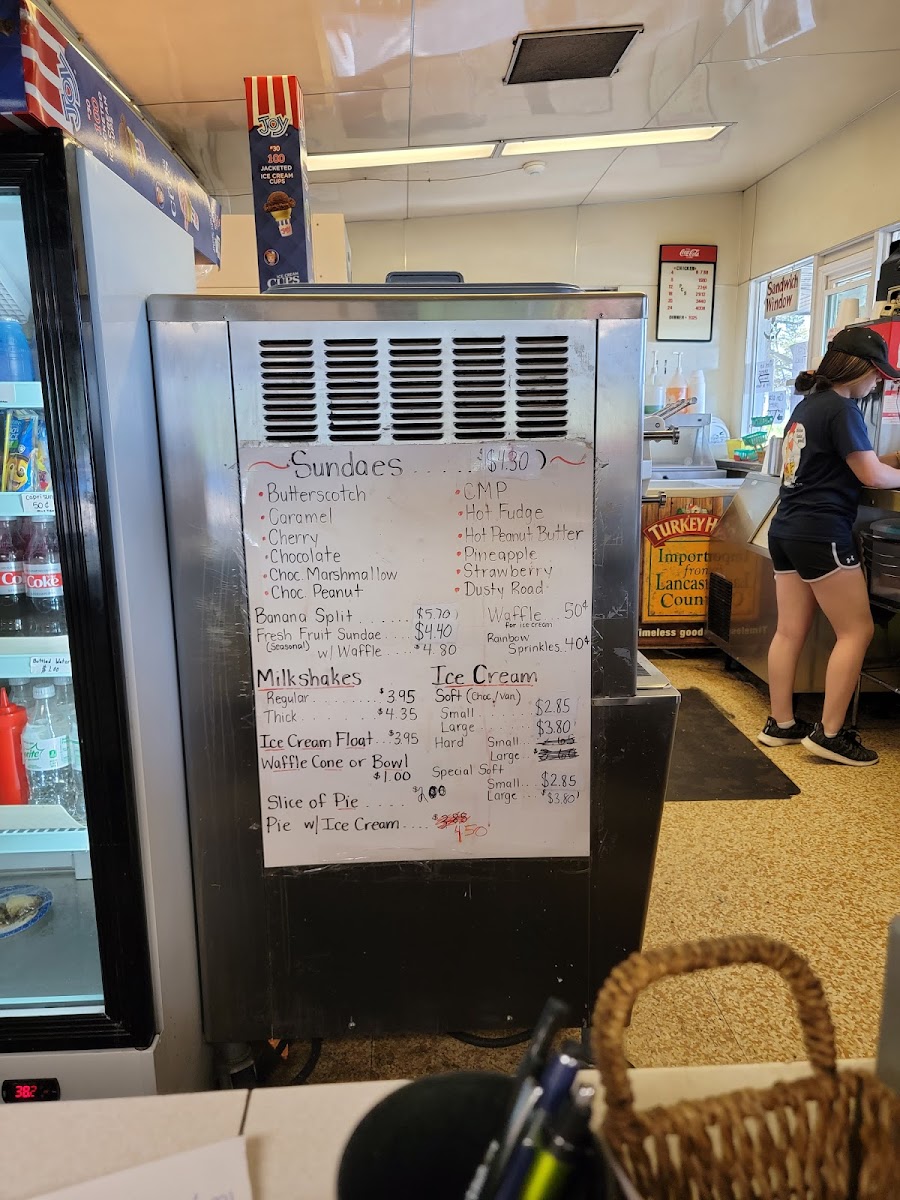 JOY
JOY
#30
100
JACKETED
ICE CREAM
CUPS
ICE CREAM
CUPS
Coca-Cola
CHICKEN
Sandwich
Window
TURKEY H
Import
from
Lancas
Coun
Timeless good
Sundaes ....... $4.30
• Butterscotch
• Caramel
• Cherry
• Chocolate
• Choc. Marshmallow
• Choc. Peanut
• CMP
• Hot Fudge
• Hot Peanut Butter
• Pineapple
• Strawberry
• Dusty Road
Banana Split ....... $5.70
Fresh Fruit Sundae .... $4.40
(Seasonal) w/ Waffle .... $4.80
Waffle ... 50¢
For ice cream
Rainbow
Sprinkles. 40¢
Milkshakes
Regular ........ $3.95
Thick ......... $4.35
Ice Cream Float ... $3.95
Waffle Cone or Bowl
$1.00
Slice of Pie ..... $2.00
Pie w/ Ice Cream .... 4.50
Ice Cream
Soft (Choc./Van)
Small $2.85
Large $3.80
Hard Small
Large
Special Soft
Small... $2.85
Large ... $3.80
50¢
Coke
Bottled Water
38.2